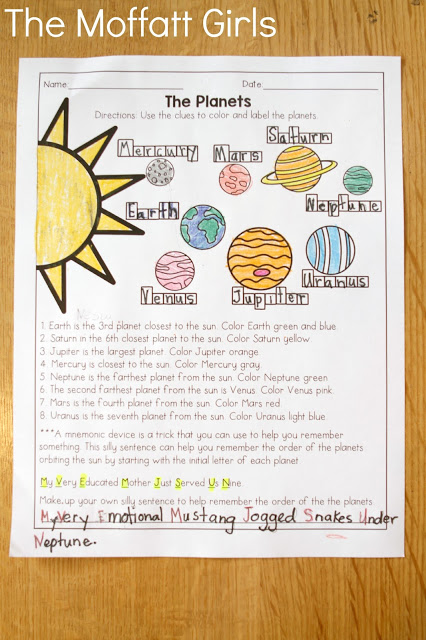 The Moffatt Girls
Name: Date:
The Planets
Directions: Use the clues to color and label the planets.
Saturn
Mercury
Mars
Neptune
Earth
Uranus
Venus
Jupiter
1. Earth is the 3rd planet closest to the sun. Color Earth green and blue.
2. Saturn in the 6th closest planet to the sun. Color Saturn yellow.
3. Jupiter is the largest planet. Color Jupiter orange
4. Mercury is closest to the sun. Color Mercury gray.
5. Neptune is the farthest planet from the sun. Color Neptune green
6. The second farthest planet from the sun is Venus. Color Venus pink.
7. Mars is the fourth planet from the sun. Color Mars red.
8. Uranus is the seventh planet from the sun. Color Uranus light blue.
***A mnemonic device is a trick that you can use to help you remember
something. This silly sentence can help you remember the order of the planets
orbiting the sun by starting with the initial letter of each planet.
My Very Educated Mother Just Served Us Nine.
Make up your own silly sentence to help remember the order of the the planets.
My Very Emotional Mustang Jogged Snakes Under
Neptune.